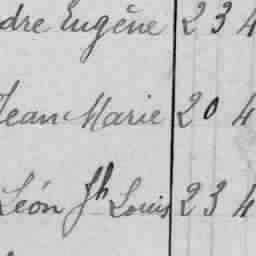 dre Eugène 23 4
Jean Marie 20 4
Léon Jh Louis 23 4